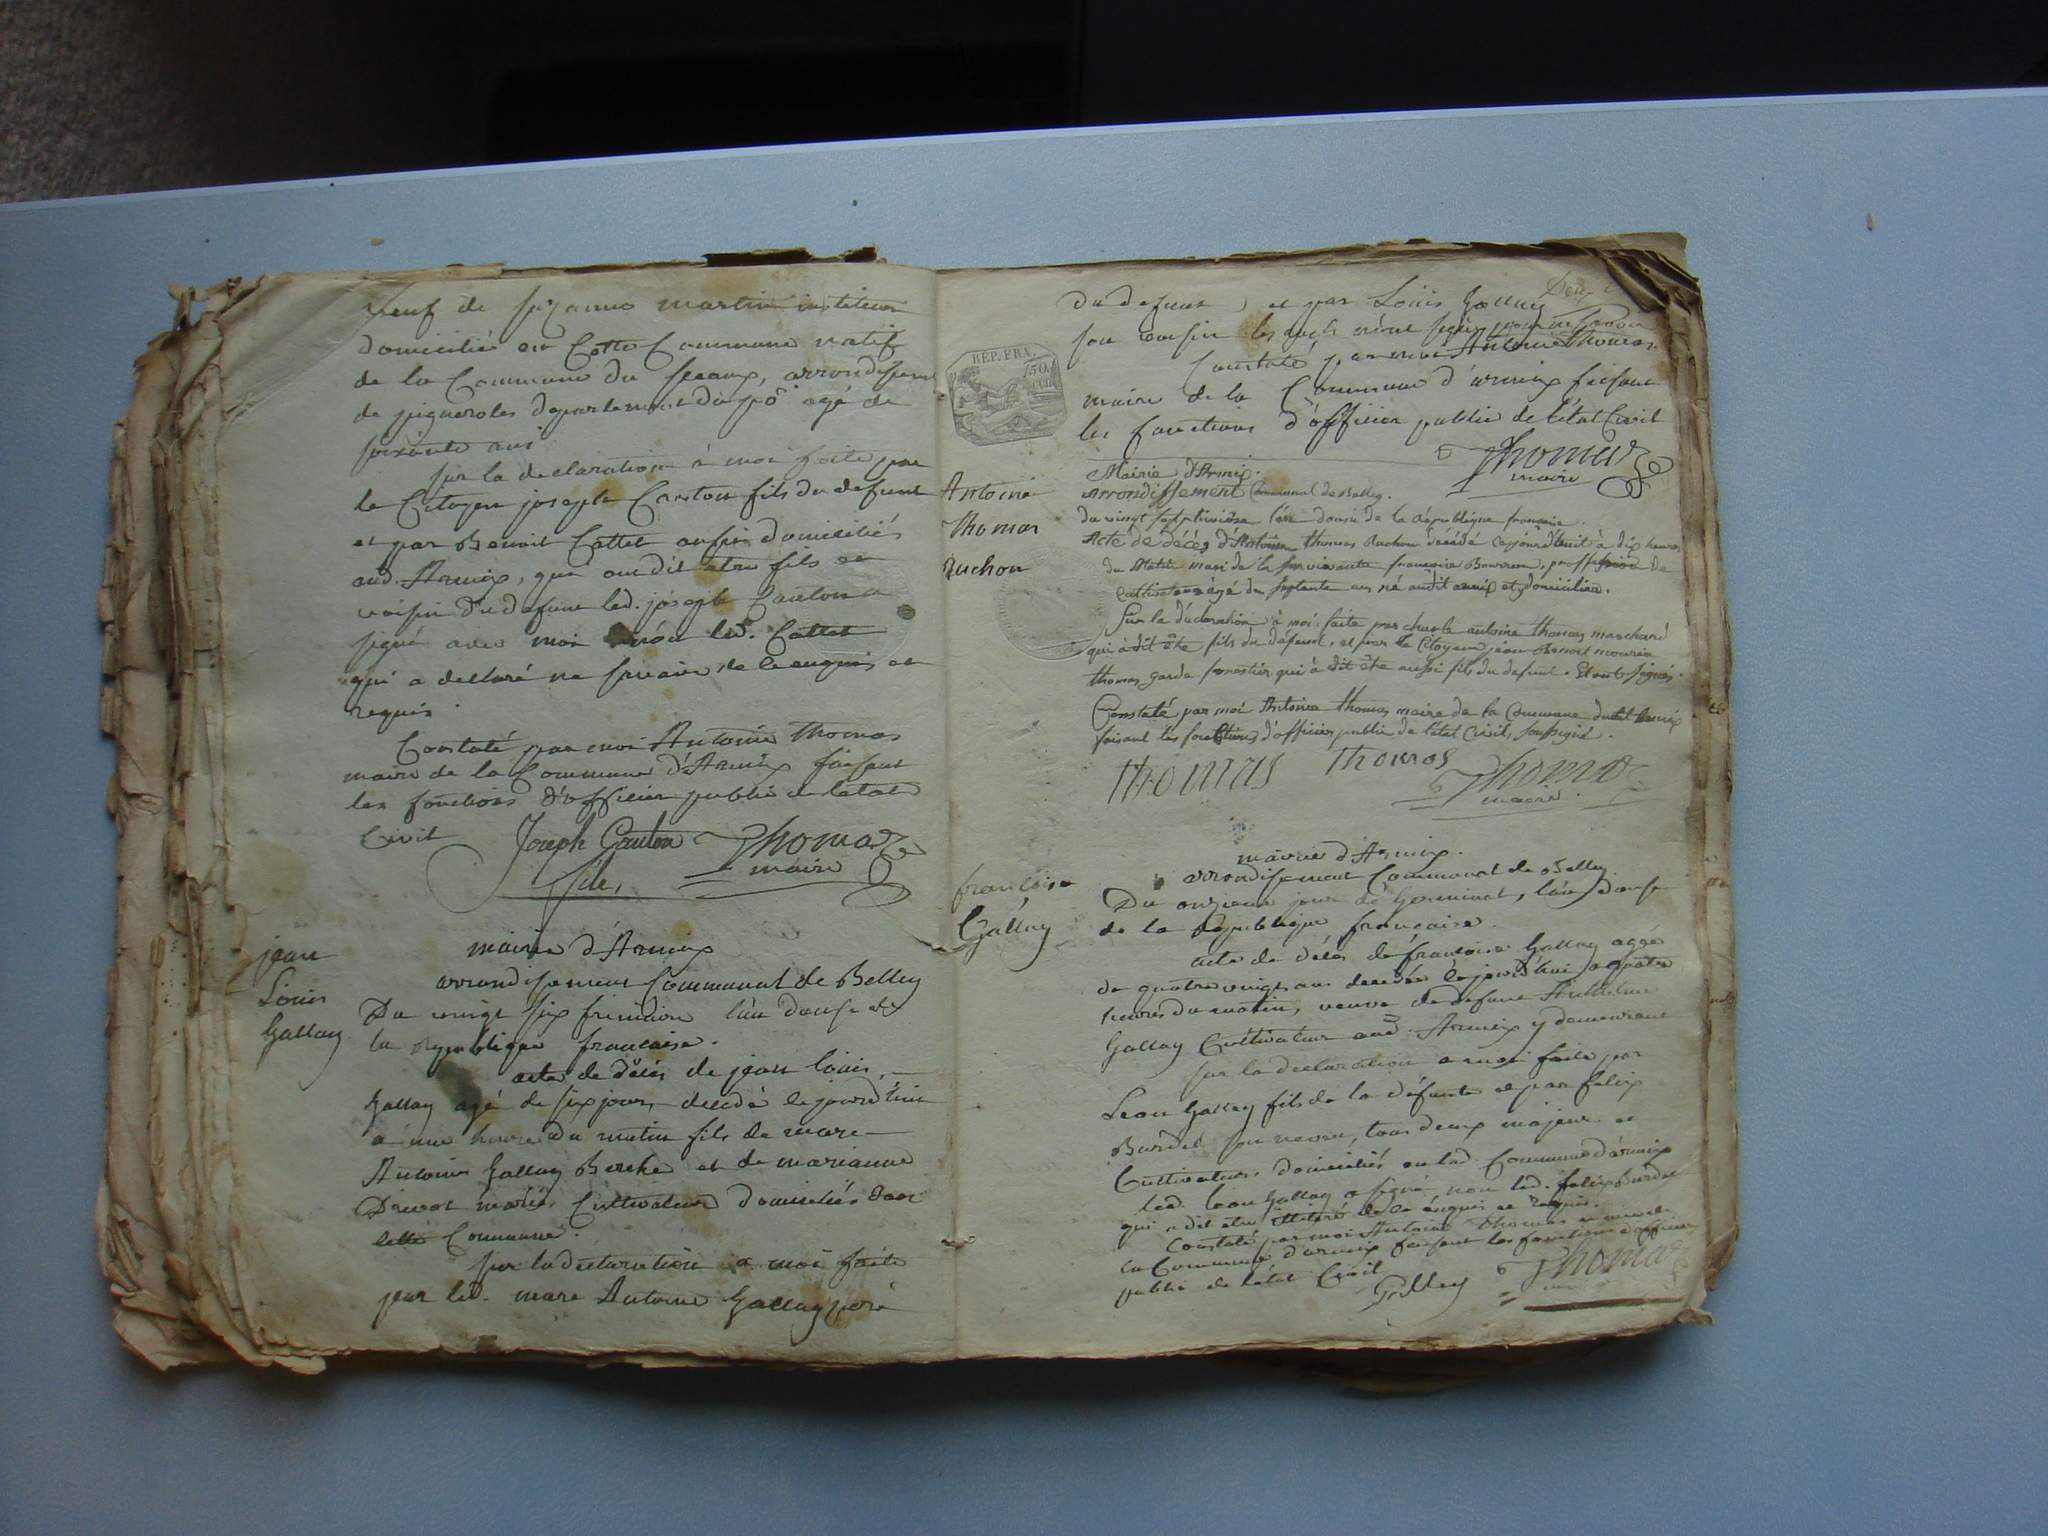 veuf de suzanne martin instituteur
domicilié en Cette Commune natif
de la Commune du , arrondissement
de pigneroles departement du pô agé de
soixante ans
sur la declaration à moi faite par
le Citoyen joseph Canton fils du defunt
et par Benoit Cattet aussi domiciliés
aud. Armix, qui ont dit etre fils et
voisin du defunt led. joseph Canton a
signé avec moi non led. Cattet
qui a declaré ne savoir de ce enquis et
requis
Constaté par moi Antoine Thomas
maire de la Commune d'Armix faisant
les fonctions d'officier public de letat
Civil Joseph Canton Thomas
fils, maire
jean
Louis
Gallay
mairie d'Armix
arrondissement Communal de Belley
Du vingt six frimaire l'an douse de
la republique francaise.
acte de décès de jean louis
Gallay agé de six jours, decedé cejourd'huis
a une heure du matin fils de marc
Antoine Gallay Berche et de marianne
mariés Cultivateurs domiciliés dans
cette Commune.
sur la declaration a moi faite
par led. marc Antoine Gallay père
du defunt, et par Louis Gallay
son cousin
Constaté par moi Antoine Thomas
maire de la Commune d'armix faisant
les fonctions d'officier public de l'état Civil
Thomas
maire
REP. FRA.
50
cen
Antoine
Thomas
Ruchon
Mairie d'Armix.
Arrondissement Communal de Belley.
du vingt sept l'an douse de la république francaise.
Acte de décès d'Antoine Thomas Ruchon décédé cejourd'huit à dix heures
du Matin mari de la survivante francoise , proffession de
Cultivateur agé de septante ans né audit armix et y domicilié.
Sur la déclaration à moi faite par charle antoine thomas marchand
qui à dit être fils du défunt, et par le Citoyen jean Benoit
thomas garde forestier qui à dit être aussi fils du defunt. Et ont signés.
Constaté par moi Antoine thomas maire de la Commune dudit Armix
faisant les fonctions d'officier public de l'état Civil, soussigné.
THOMAS Thomas Thomas
maire
francoise
Gallay
mairie d'Armix.
arrondissement Communal de Belley
Du onzieme jour de Germinal, l'an douse
de la Republique francaise.
acte de décès de francoise Gallay agée
de quatre vingt ans decedée cejourd'hui a quatre
heures du matin, veuve de defunt Anthelme
Gallay Cultivateur aud. Armix y demeurant
sur la declaration a moi faite par
Leon Gallay fils de la défunte et par felix
Burdet son neveu, tous deux majeurs et
Cultivateurs domiciliés en lad. Commune d'armix
led. Leon Gallay a signé non led. felix Burdet
qui a dit etre illitéré de ce enquis et requis.
Constaté par moi Antoine Thomas maire de
la Commune d'armix faisant les fonctions d'officier
public de l'état Civil
Gallay Thomas